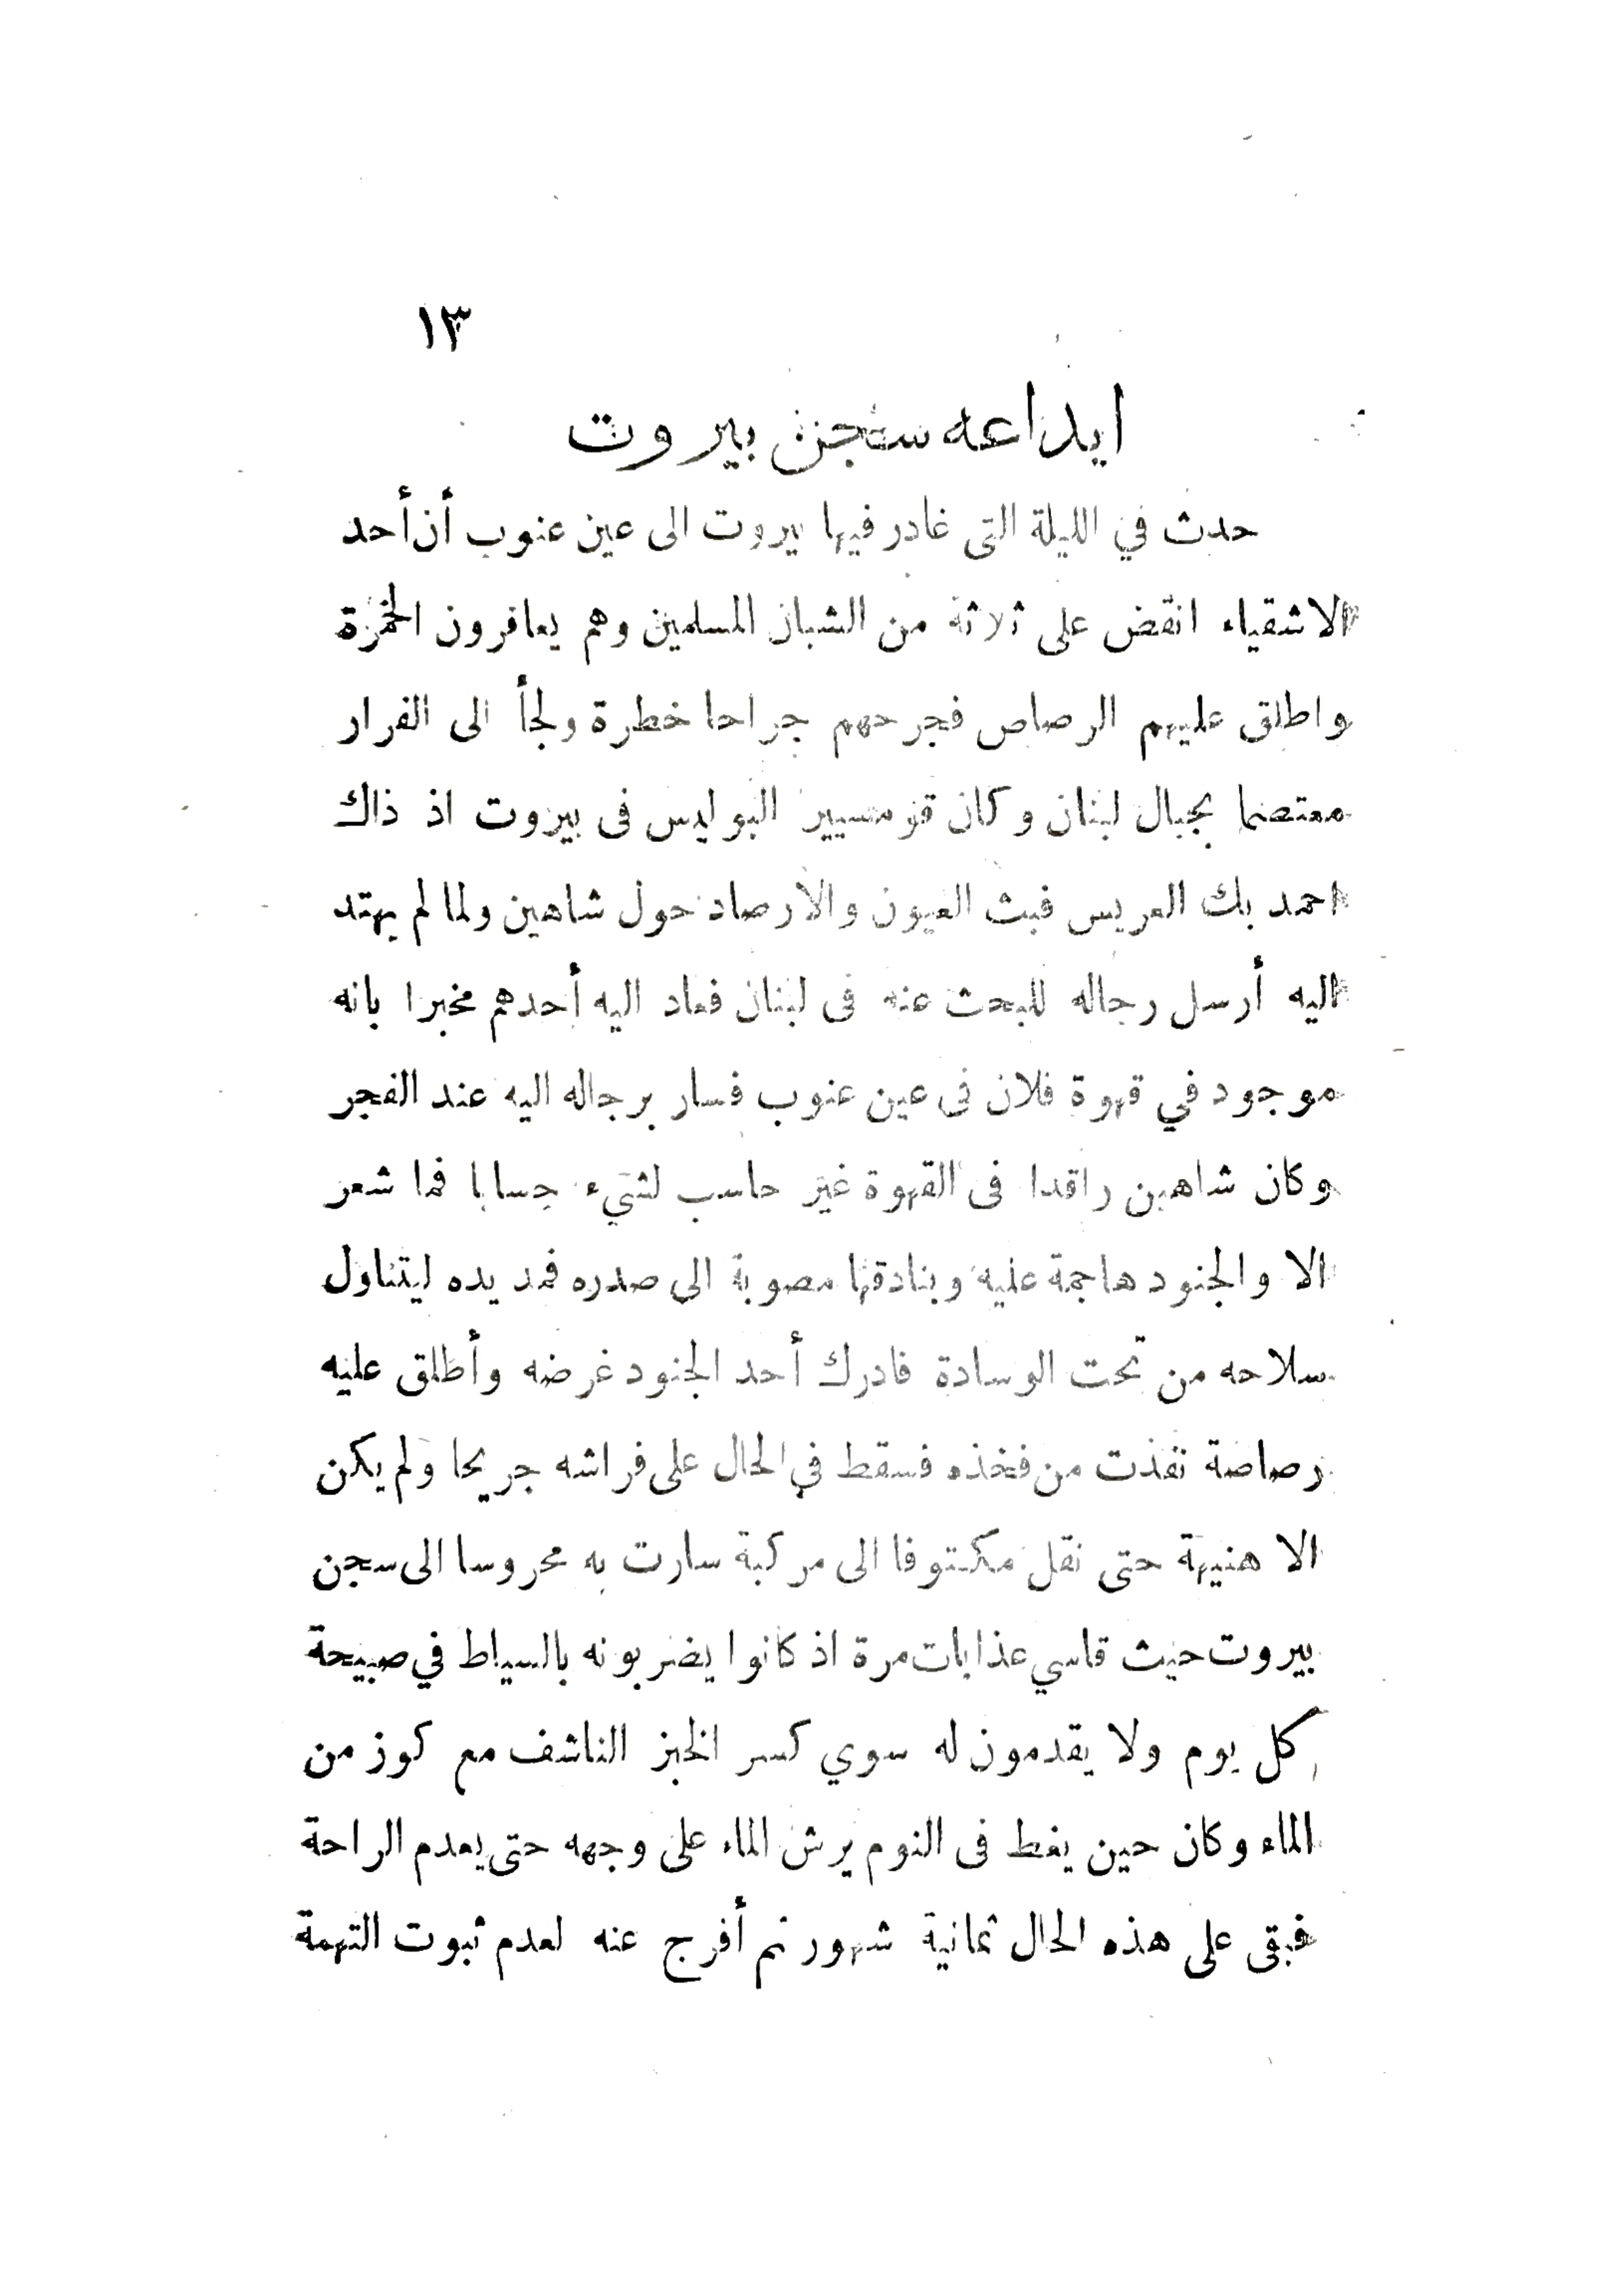 ١٣
ايداعه سجن بيروت
حدث في الليلة التى غادر فيها بيروت الى عين عنوب أن أحد
الاشقياء انقض على ثلاثة من الشبان المسلمين وهم يعاقرون الخمرة
واطلق عليهم الرصاص فجرحهم جراحا خطرة ولجأ الى الفرار
معتصما بجبال لبنان وكان قومسيير البوليس فى بيروت اذ ذاك
احمد بك العريس فبث العيون والارصاد حول شاهين ولما لم يهتد
اليه أرسل رجاله للبحث عنه فى لبنان فعاد اليه أحدهم مخبرا بانه
موجود في قهوة فلان فى عين عنوب فسار برجاله اليه عند الفجر
وكان شاهين راقدا فى القهوة غير حاسب لشيء حسابا فما شعر
الا والجنود هاجمة عليه وبنادقها مصوبة الى صدره فمد يده ليتناول
سلاحه من تحت الوسادة فادرك أحد الجنود غرضه وأطلق عليه
رصاصة نفذت من فخذه فسقط في الحال على فراشه جريحا ولم يكن
الا هنيهة حتى نقل مكتوفا الى مركبة سارت به محروسا الى سجن
بيروت حيث قاسي عذابات مرة اذ كانوا يضربونه بالسياط في صبيحة
كل يوم ولا يقدمون له سوي كسر الخبز الناشف مع كوز من
الماء وكان حين يغط فى النوم يرش الماء على وجهه حتى يعدم الراحة
فبقى على هذه الحال ثمانية شهور ثم أفرج عنه لعدم ثبوت التهمة